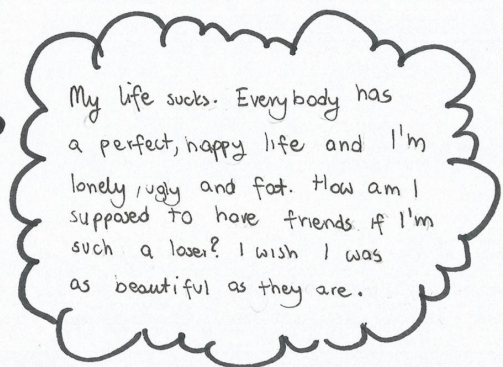 My life sucks. Everybody has
a perfect, happy life and I'm
lonely, ugly and fat. How am I
supposed to have friends if I'm
such a loser? I wish I was
as beautiful as they are.